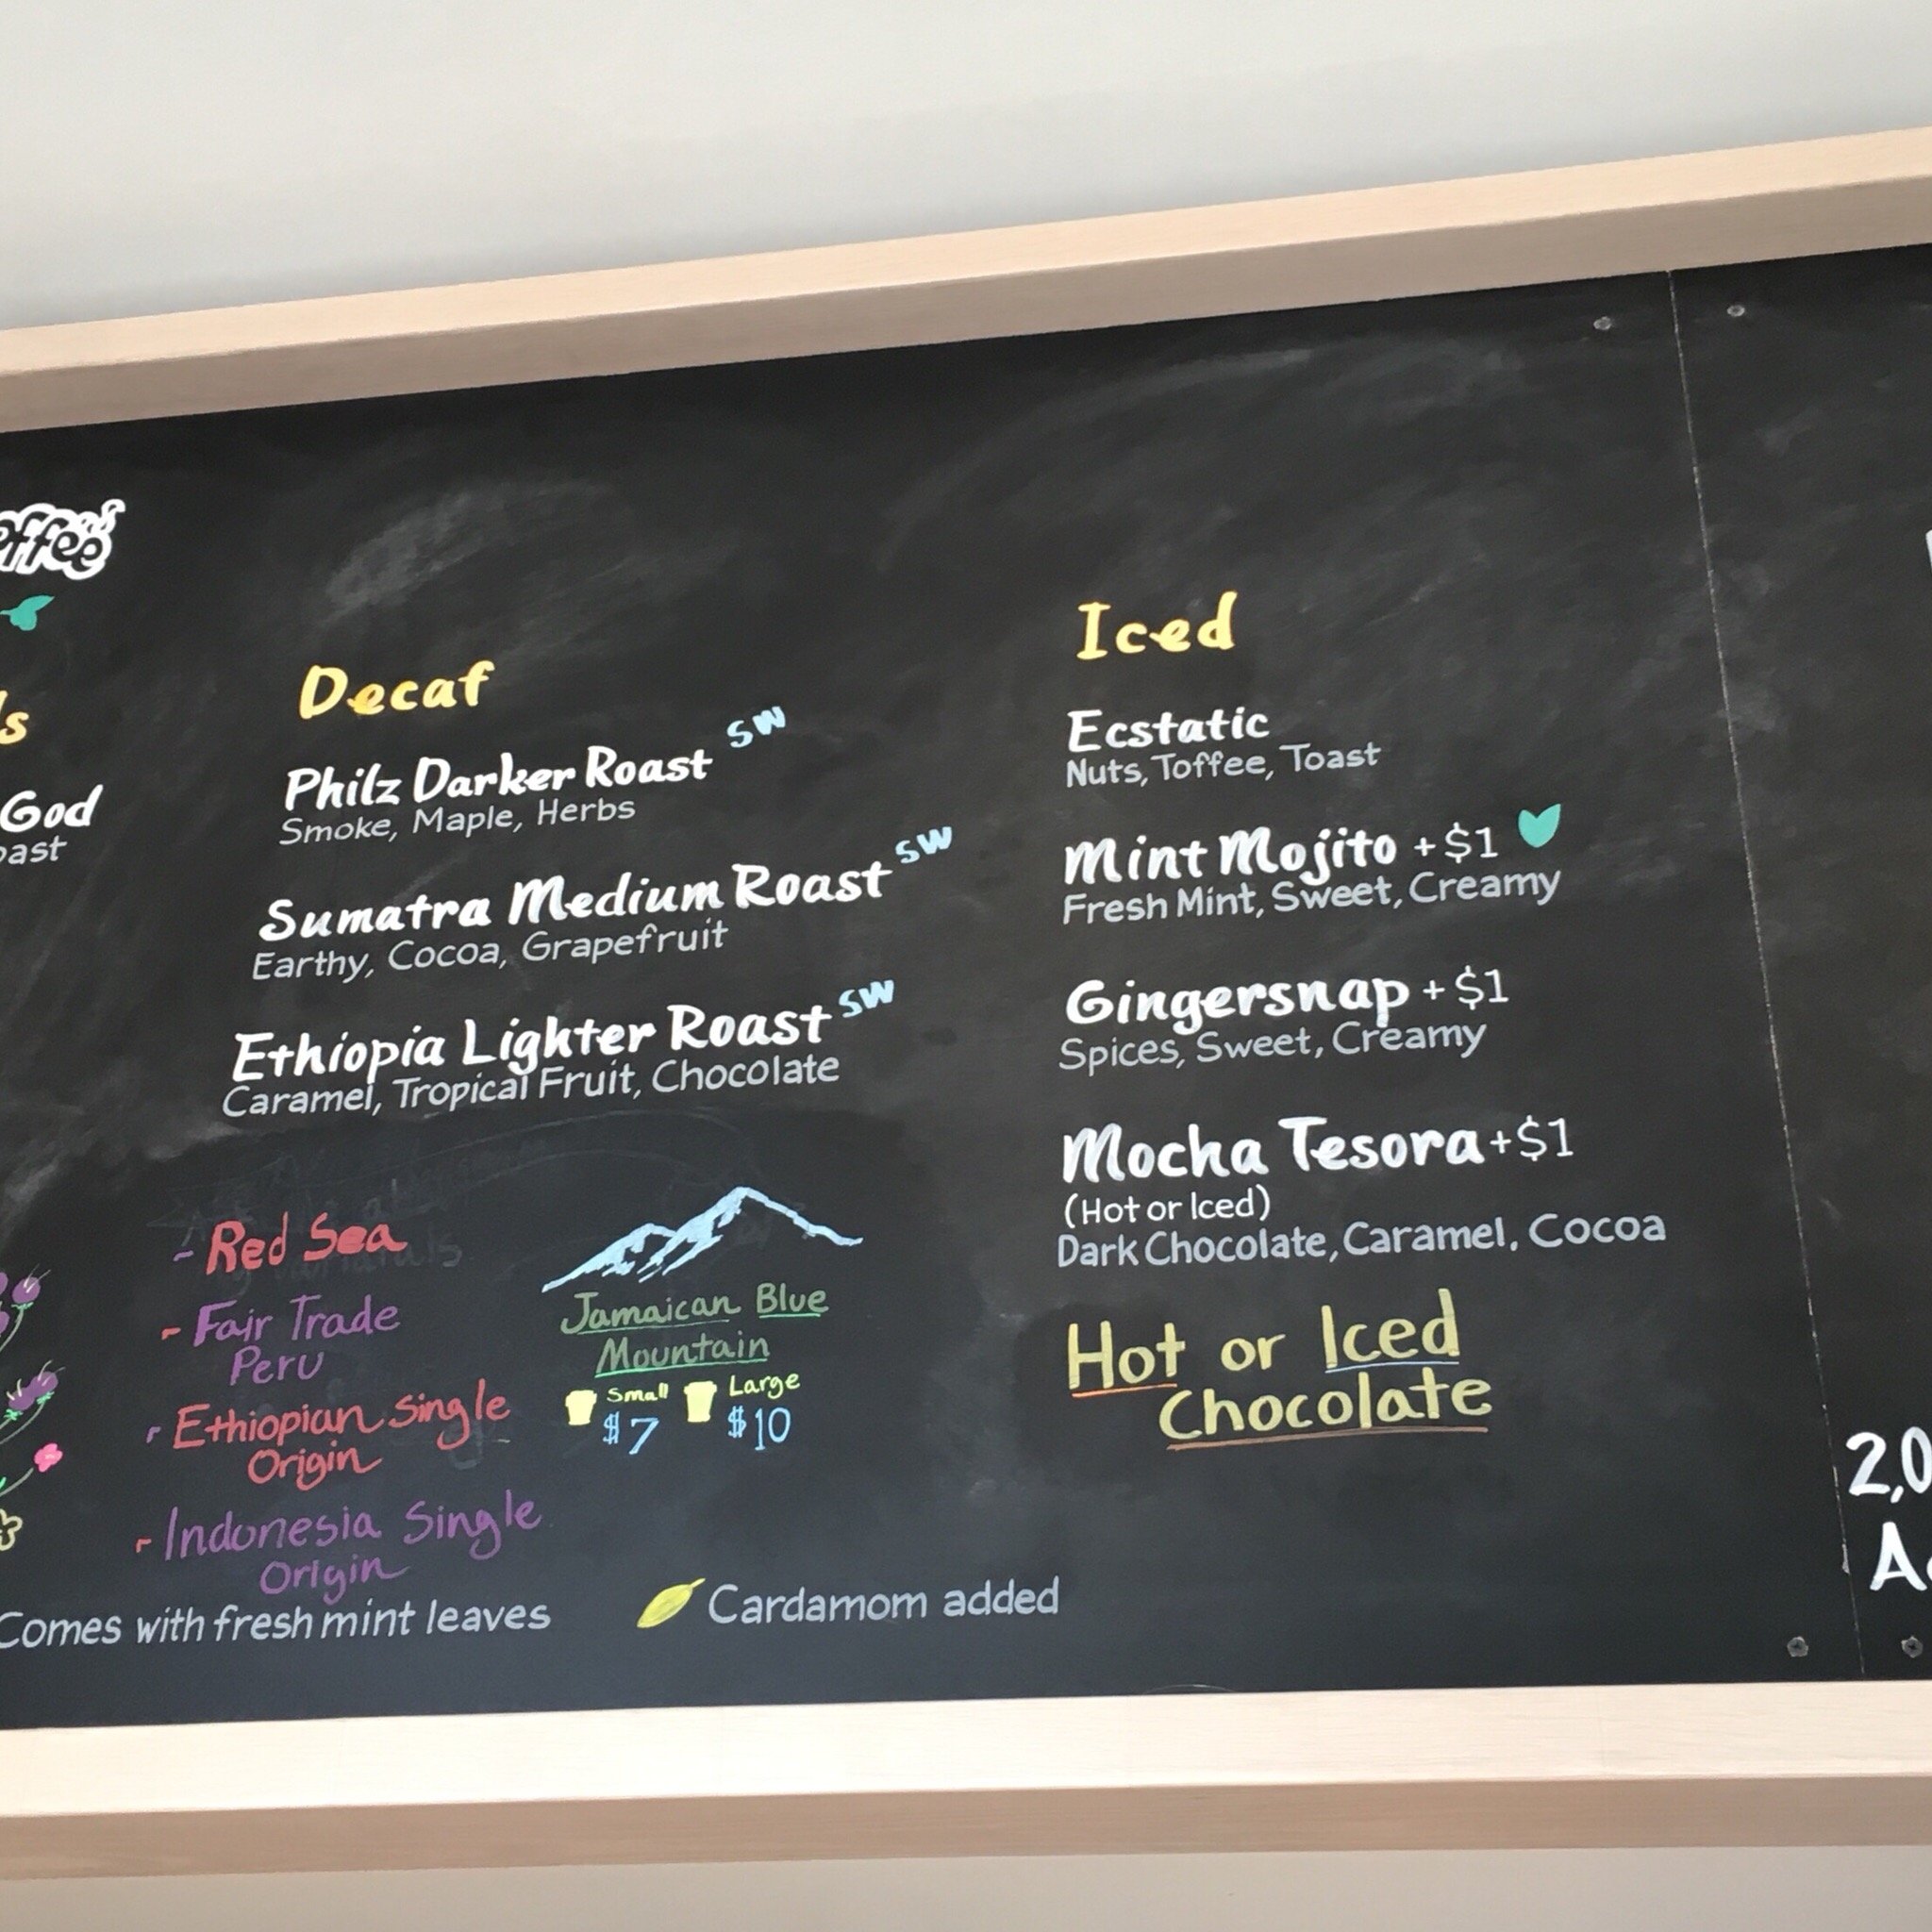 Decaf
Philz Darker Roast SW
Smoke, Maple, Herbs
Sumatra Medium Roast SW
Earthy, Cocoa, Grapefruit
Ethiopia Lighter Roast SW
Caramel, Tropical Fruit, Chocolate
- Red Sea
- Fair Trade
Peru
- Ethiopian Single
Origin
- Indonesia Single
Origin
Jamaican Blue
Mountain
Small Large
$7 $10
God
Comes with fresh mint leaves
Cardamom added
Iced
Ecstatic
Nuts, Toffee, Toast
Mint Mojito +$1
Fresh Mint, Sweet, Creamy
Gingersnap +$1
Spices, Sweet, Creamy
Mocha Tesora +$1
(Hot or Iced)
Dark Chocolate, Caramel, Cocoa
Hot or Iced
Chocolate